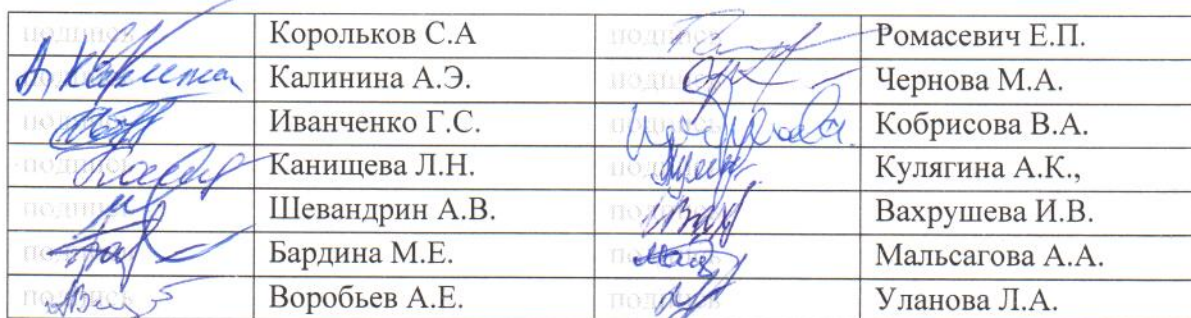 подпись Корольков С.А подпись Ромасевич Е.П.
подпись Калинина А.Э. подпись Чернова М.А.
подпись Иванченко Г.С. подпись Кобрисова В.А.
подпись Канищева Л.Н. подпись Кулягина А.К.,
подпись Шевандрин А.В. подпись Вахрушева И.В.
подпись Бардина М.Е. подпись Мальсагова А.А.
подпись Воробьев А.Е. подпись Уланова Л.А.